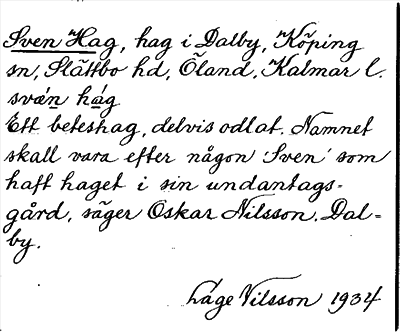 Sven Hag, hag i Dalby, Köping
sn, Slättbo hd, Öland, Kalmar l.
svä́n hǡg
Ett beteshag, delvis odlat. Namnet
skall vara efter någon 'Sven' som
haft haget i sin undantags-
gård, säger Oskar Nilsson. Dal-
by.
Låge Nilsson 1934